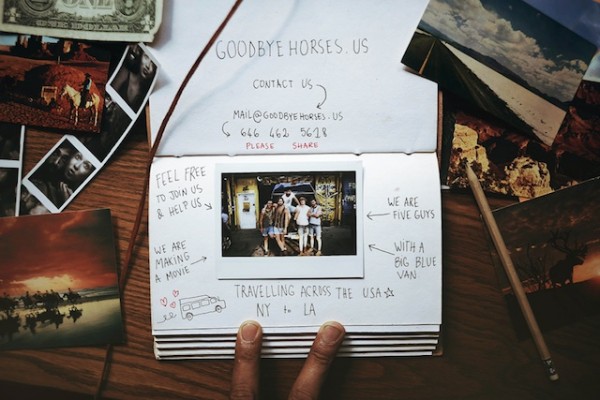 GOODBYEHORSES.US
CONTACT US
MAIL@GOODBYEHORSES.US
646 462 5628
PLEASE SHARE
FEEL FREE
TO JOIN US
& HELP US
WE ARE
MAKING
A MOVIE
WE ARE
FIVE GUYS
WITH A
BIG BLUE
VAN
TRAVELLING ACROSS THE USA
NY to LA